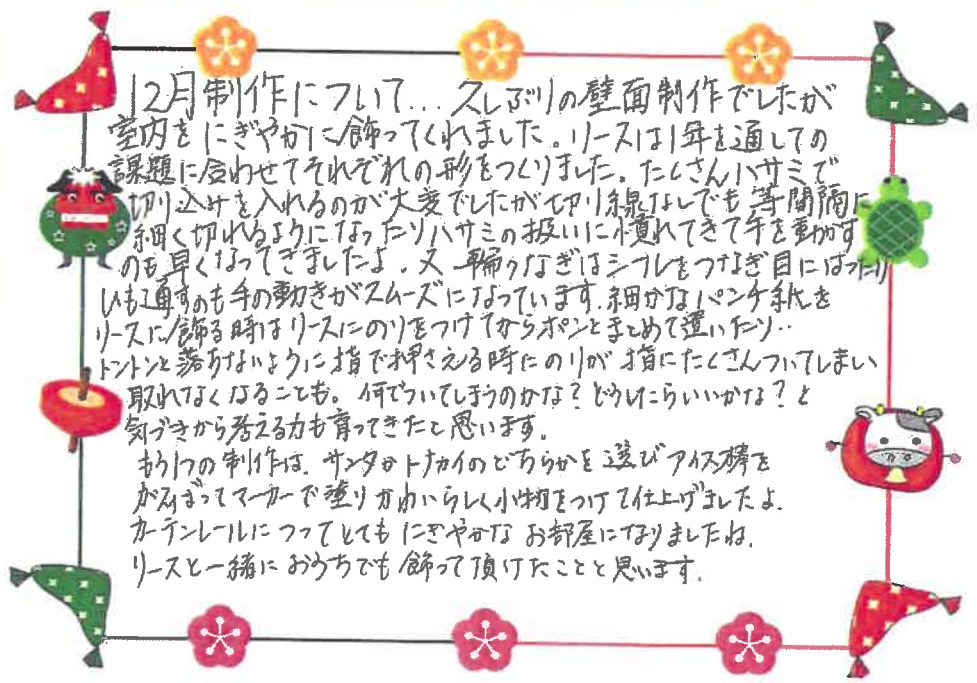 12月制作について… 久しぶりの壁面制作でしたが
室内をにぎやかに飾ってくれました。リースは1年を通しての
課題に合わせてそれぞれの形をつくりました。たくさんハサミで
切り込みを入れるのが大変でしたが切り線なしでも等間隔に
細く切れるようになったりハサミの扱いに慣れてきて手を動かす
のも早くなってきましたよ。又、輪つなぎはシフレをつなぎ目にはったり
ひも通すのも手の動きがスムーズになっています。細かなパンチ紙を
リースに飾る時はリースにのりをつけてからポンとまとめて置いたり‥
トントンと落ちないように指で押さえる時にのりが指にたくさんついてしまい
取れなくなることも。何でついてしまうのかな?どうしたらいいかな?と
気づきから考える力も育ってきたと思います。
もう1つの制作は、サンタかトナカイのどちらかを選びアイス棒を
がんばってマーカーで塗りかわいらしく小物をつけて仕上げましたよ。
カーテンレールにつってとてもにぎやかなお部屋になりましたね。
リースと一緒におうちでも飾って頂けたことと思います。